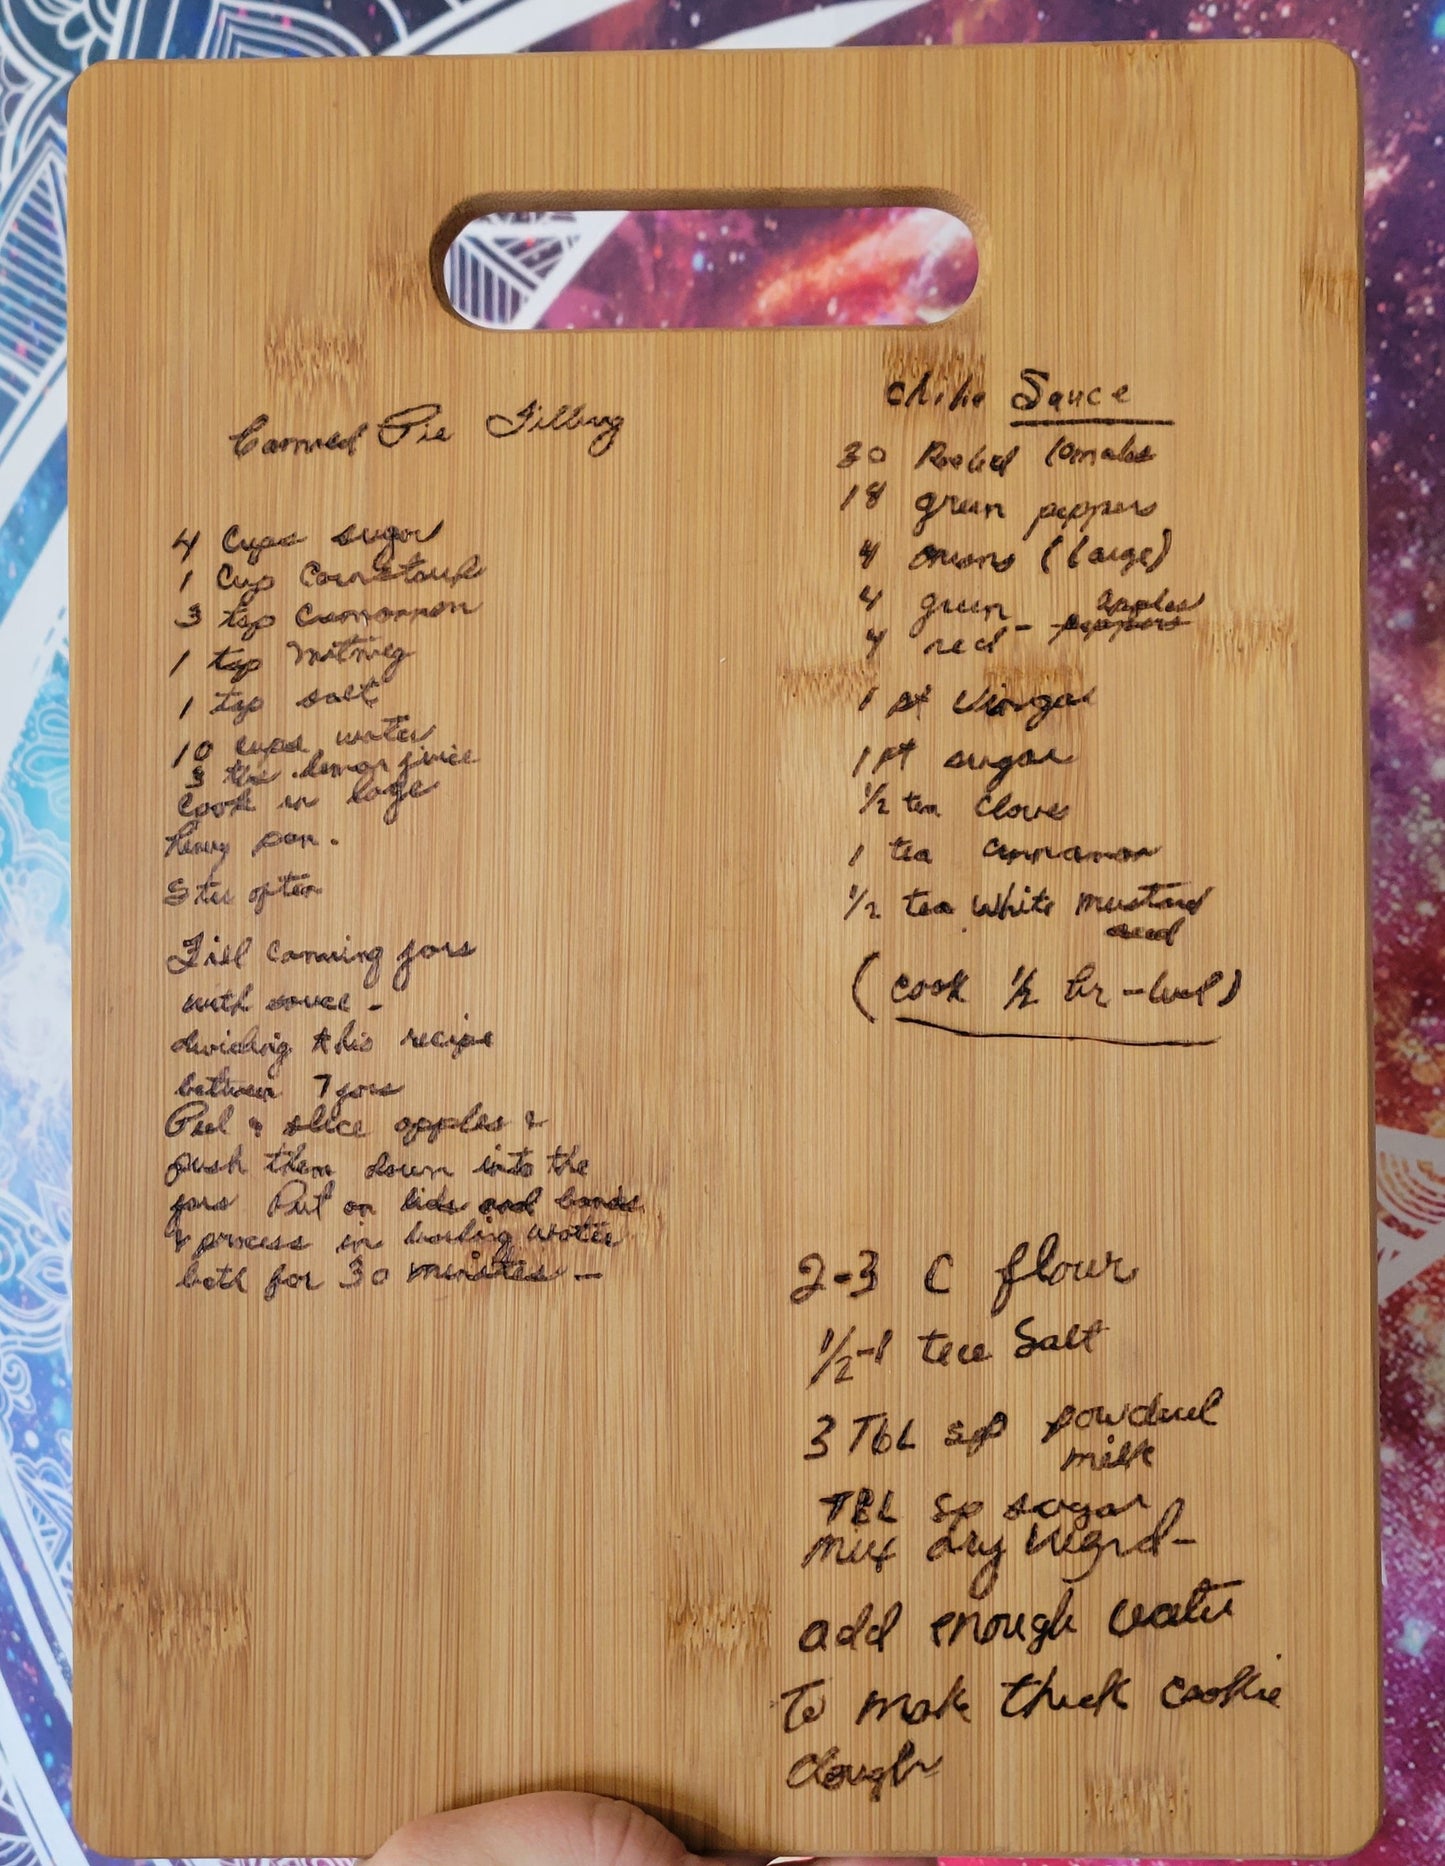 Canned Pie Filling
4 Cups sugar
1 Cup Cornstarch
3 tsp Cinnamon
1 tsp Nutmeg
1 tsp salt
10 cups water
3 tbs. lemon juice
Cook in large
heavy pan.
Stir often
Fill canning jars
with sauce -
dividing this recipe
between 7 jars
Peel & slice apples &
push them down into the
jars Put on lids and bands
& process in boiling water
bath for 30 minutes -
Chili Sauce
30 Peeled tomatoes
18 green peppers
4 onions (large)
4 green - apples
4 red peppers
1 pt Vinegar
1 pt sugar
1/2 tea Cloves
1 tea cinnamon
1/2 tea White mustard
seed
(cook 1/2 hr - )
2-3 C flour
1/2-1 tea Salt
3 TbL sp powdered
milk
TBL sp sugar
mix dry ingrd-
add enough water
To make thick cookie
dough